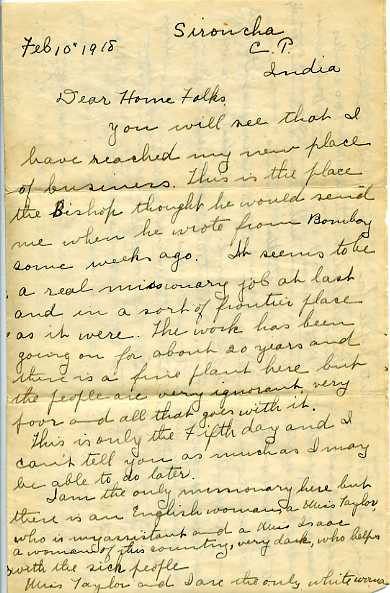 Sironcha
Feb 10th 1918
C. P.
India
Dear Home Folks,
You will see that I
have reached my new place
of business. This is the place
the Bishop thought he would send
me when he wrote from Bombay
some weeks ago. It seems to be
a real missionary job at last
and in a sort of frontier place
as it were. The work has been
going on for about 20 years and
there is a fine plant here but
the people are very ignorant very
poor and all that goes with it.
This is only the Fifth day and I
can't tell you as much as I may
be able to do later.
I am the only missionary here but
there is an English woman, a Miss Taylor
who is my assistant and a Miss Isaac
a woman of this country, very dark, who helps
with the sick people
Miss Taylor and I are the only white woman